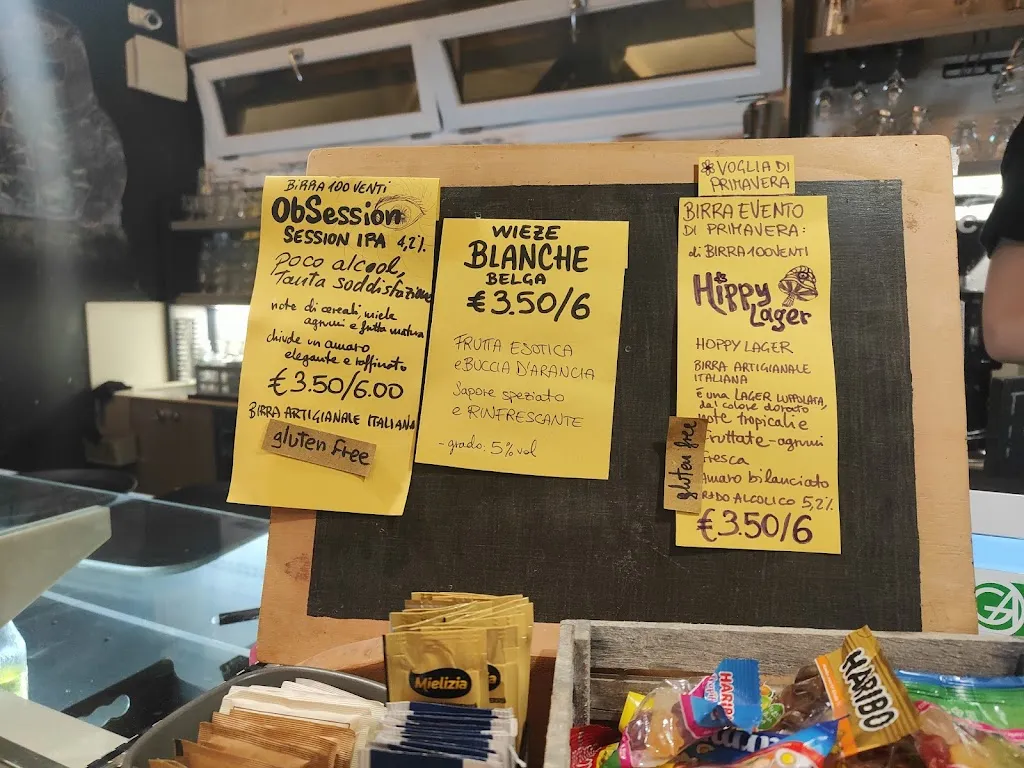 BIRRA 100 VENTI
ObSession
SESSION IPA 4,2%
POCO alcool,
Tanta soddisfazione
note di cereali, miele
agrumi e frutta matura
chiude un amaro
elegante e raffinato
€3.50/6.00
BIRRA ARTIGIANALE ITALIANA
gluten free
WIEZE
BLANCHE
BELGA
€3.50/6
FRUTTA ESOTICA
e BUCCIA D'ARANCIA
Sapore speziato
e RINFRESCANTE
- grado: 5% vol
VOGLIA DI
PRIMAVERA
BIRRA EVENTO
DI PRIMAVERA:
di BIRRA100VENTI
Hippy
Lager
HOPPY LAGER
BIRRA ARTIGIANALE
ITALIANA
È una LAGER LUPPOLATA,
dal colore dorato
note tropicali e
fruttate-agrumi
Fresca
amaro bilanciato
RADO ALCOLICO 5,2%
€3.50/6
gluten free
Mielizia
HARIBO
HARIBO